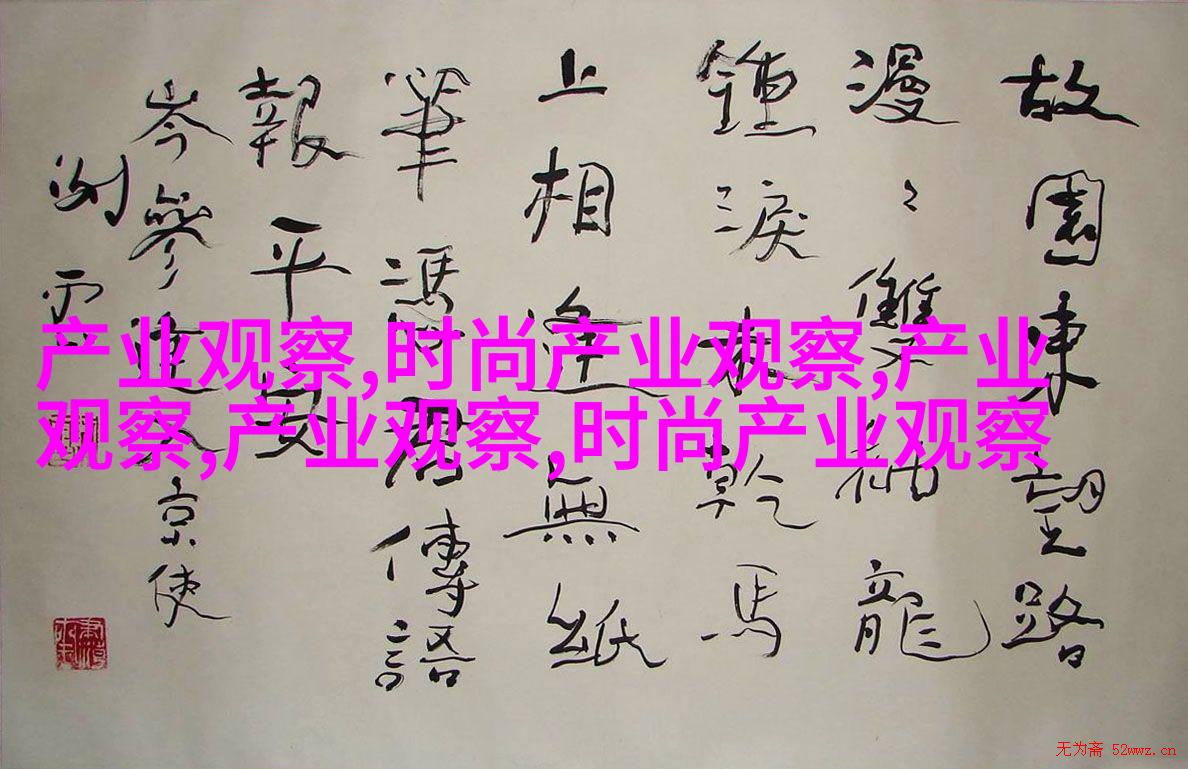 故園東望路
漫々雙袖龍
鍾淚乾馬
上相逢無紙
筆馮君傳語
報平安
岑參逢入京使
产业观察,时尚产业观察,产业
观察,产业观察,时尚产业观察
无为斋 52wwz.cn